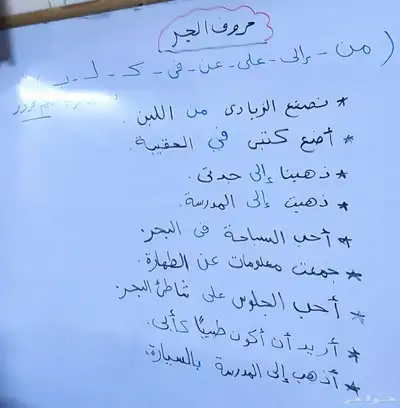 حروف الجر
( من - إلى - على - عن - في - كـ - لـ - بـ
* نصنع الزبادى من اللبن.
* أضع كتبى في الحقيبة.
* ذهبنا إلى جدتى.
* ذهبت إلى المدرسة.
* أحب السباحة فى البحر.
* جمعت معلومات عن الطهارة.
* أحب الجلوس على شاطئ البحر.
* أريد أن أكون طبيبًا كأبى.
* أذهب إلى المدرسة بالسيارة.